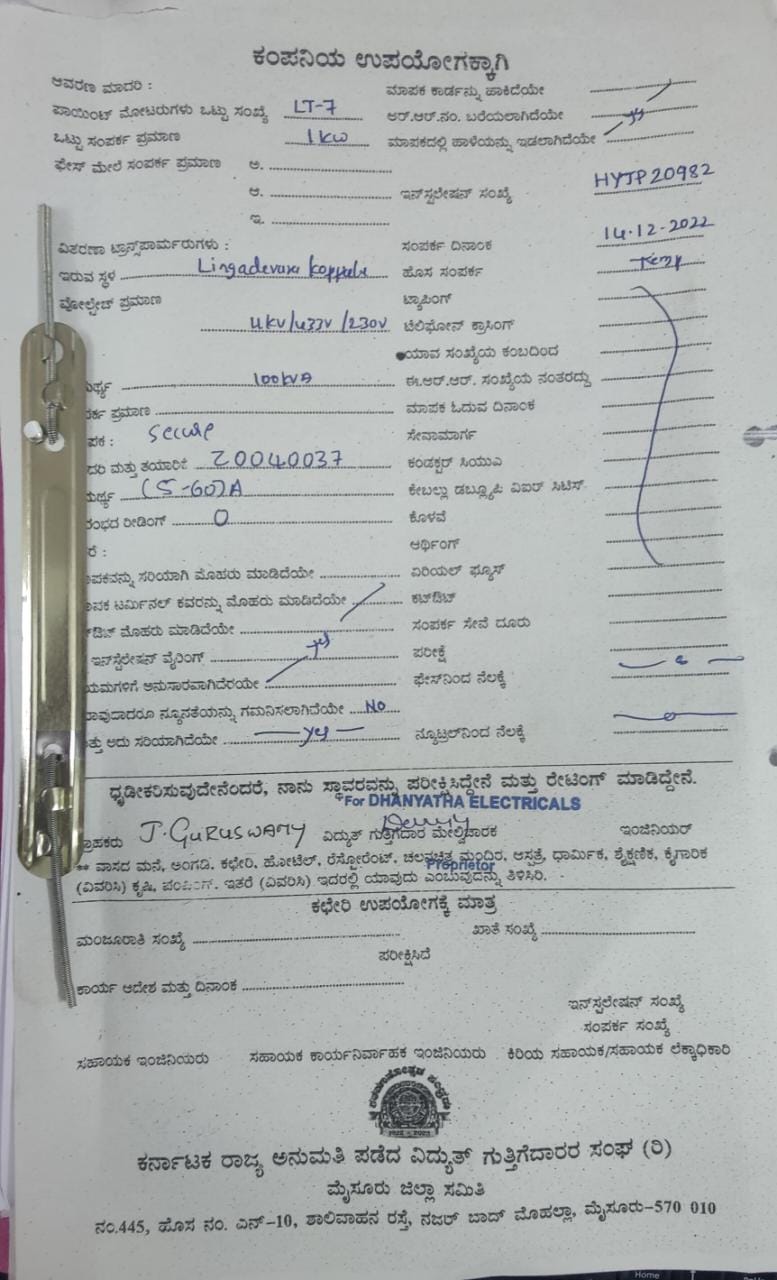 ಕಂಪನಿಯ ಉಪಯೋಗಕ್ಕಾಗಿ
ಆವರಣ ಮಾದರಿ : ಮಾಪಕ ಕಾರ್ಡನ್ನು ಹಾಕಿದೆಯೇ
ಪಾಯಿಂಟ್ ಮೋಟರುಗಳು ಒಟ್ಟು ಸಂಖ್ಯೆ LT-7 ಆರ್.ಆರ್.ನಂ. ಬರೆಯಲಾಗಿದೆಯೇ yes
ಒಟ್ಟು ಸಂಪರ್ಕ ಪ್ರಮಾಣ 1kw ಮಾಪಕದಲ್ಲಿ ಹಾಳೆಯನ್ನು ಇಡಲಾಗಿದೆಯೇ
ಫೇಸ್ ಮೇಲೆ ಸಂಪರ್ಕ ಪ್ರಮಾಣ ಅ.
ಆ. ಇನ್‌ಸ್ಟಲೇಷನ್ ಸಂಖ್ಯೆ HYTP20982
ಇ.
ವಿತರಣಾ ಟ್ರಾನ್ಸ್‌ಪಾರ್ಮರುಗಳು : ಸಂಪರ್ಕ ದಿನಾಂಕ 14-12-2022
ಇರುವ ಸ್ಥಳ Lingadevaru koppalu ಹೊಸ ಸಂಪರ್ಕ Temp
ವೋಲ್ಟೇಜ್ ಪ್ರಮಾಣ ಟ್ಯಾಪಿಂಗ್
11KV/433V/230V ಟೆಲಿಫೋನ್ ಕ್ರಾಸಿಂಗ್
ಯಾವ ಸಂಖ್ಯೆಯ ಕಂಬದಿಂದ
ರ್ಥ್ಯ 100kVA ಈ.ಆರ್.ಆರ್. ಸಂಖ್ಯೆಯ ನಂತರದ್ದು
ರ್ಕ ಪ್ರಮಾಣ ಮಾಪಕ ಓದುವ ದಿನಾಂಕ
ಪಕ : Secure ಸೇವಾಮಾರ್ಗ
ದರಿ ಮತ್ತು ತಯಾರಿಕೆ 20040037 ಕಂಡಕ್ಟರ್ ಸಿಯುಎ
ಮರ್ಥ್ಯ (5-60)A ಕೇಬಲ್ಲು ಡಬ್ಲ್ಯೂಪಿ ವಿಐರ್ ಸಿಟಿಸ್
ರಂಭದ ರೀಡಿಂಗ್ 0 ಕೊಳವೆ
ರೆ : ಆರ್ಥಿಂಗ್
ಾಪಕವನ್ನು ಸರಿಯಾಗಿ ಮೊಹರು ಮಾಡಿದೆಯೇ ಏರಿಯಲ್ ಫ್ಯೂಸ್
ಾಪಕ ಟರ್ಮಿನಲ್ ಕವರನ್ನು ಮೊಹರು ಮಾಡಿದೆಯೇ ಕಟ್‌ಔಟ್
ಟ್‌ಔಟ್ ಮೊಹರು ಮಾಡಿದೆಯೇ ಸಂಪರ್ಕ ಸೇವೆ ದೂರು
ಇನ್‌ಸ್ಟಲೇಷನ್ ವೈರಿಂಗ್ yes ಪರೀಕ್ಷೆ
ಯಮಗಳಿಗೆ ಅನುಸಾರವಾಗಿದೆರೆಯೇ ಫೇಸ್‌ನಿಂದ ನೆಲಕ್ಕೆ
ಾವುದಾದರೂ ನ್ಯೂನತೆಯನ್ನು ಗಮನಿಸಲಾಗಿದೆಯೇ No
ತ್ತು ಅದು ಸರಿಯಾಗಿದೆಯೇ yes ನ್ಯೂಟ್ರಲ್‌ನಿಂದ ನೆಲಕ್ಕೆ
ಧೃಡೀಕರಿಸುವುದೇನೆಂದರೆ, ನಾನು ಸ್ಥಾವರವನ್ನು ಪರೀಕ್ಷಿಸಿದ್ದೇನೆ ಮತ್ತು ರೇಟಿಂಗ್ ಮಾಡಿದ್ದೇನೆ.
For DHANYATHA ELECTRICALS
ಗ್ರಾಹಕರು J.GURUSWAMY ವಿದ್ಯುತ್ ಗುತ್ತಿಗೆದಾರ ಮೇಲ್ವಿಚಾರಕ ಇಂಜಿನಿಯರ್
** ವಾಸದ ಮನೆ, ಅಂಗಡಿ. ಕಛೇರಿ, ಹೋಟೆಲ್, ರೆಸ್ಟೋರೆಂಟ್. ಚಲನಚಿತ್ರ ಮಂದಿರ, ಆಸ್ಪತ್ರೆ, ಧಾರ್ಮಿಕ, ಶೈಕ್ಷಣಿಕ, ಕೈಗಾರಿಕ
Proprietor
(ವಿವರಿಸಿ) ಕೃಷಿ, ಪಂಪಿಂಗ್. ಇತರೆ (ವಿವರಿಸಿ) ಇದರಲ್ಲಿ ಯಾವುದು ಎಂಬುವುದನ್ನು ತಿಳಿಸಿರಿ.
ಕಛೇರಿ ಉಪಯೋಗಕ್ಕೆ ಮಾತ್ರ
ಮಂಜೂರಾತಿ ಸಂಖ್ಯೆ ಖಾತೆ ಸಂಖ್ಯೆ
ಪರೀಕ್ಷಿಸಿದೆ
ಕಾರ್ಯ ಆದೇಶ ಮತ್ತು ದಿನಾಂಕ
ಇನ್‌ಸ್ಟಲೇಷನ್ ಸಂಖ್ಯೆ
ಸಂಪರ್ಕ ಸಂಖ್ಯೆ
ಸಹಾಯಕ ಇಂಜಿನಿಯರು ಸಹಾಯಕ ಕಾರ್ಯನಿರ್ವಾಹಕ ಇಂಜಿನಿಯರು ಕಿರಿಯ ಸಹಾಯಕ/ಸಹಾಯಕ ಲೆಕ್ಕಾಧಿಕಾರಿ
ಕರ್ನಾಟಕ ರಾಜ್ಯ ಅನುಮತಿ ಪಡೆದ ವಿದ್ಯುತ್ ಗುತ್ತಿಗೆದಾರರ ಸಂಘ (ರಿ)
ಮೈಸೂರು ಜಿಲ್ಲಾ ಸಮಿತಿ
ನಂ.445, ಹೊಸ ನಂ. ಎನ್-10, ಶಾಲಿವಾಹನ ರಸ್ತೆ, ನಜರ್ ಬಾದ್ ಮೊಹಲ್ಲಾ, ಮೈಸೂರು-570 010
Home